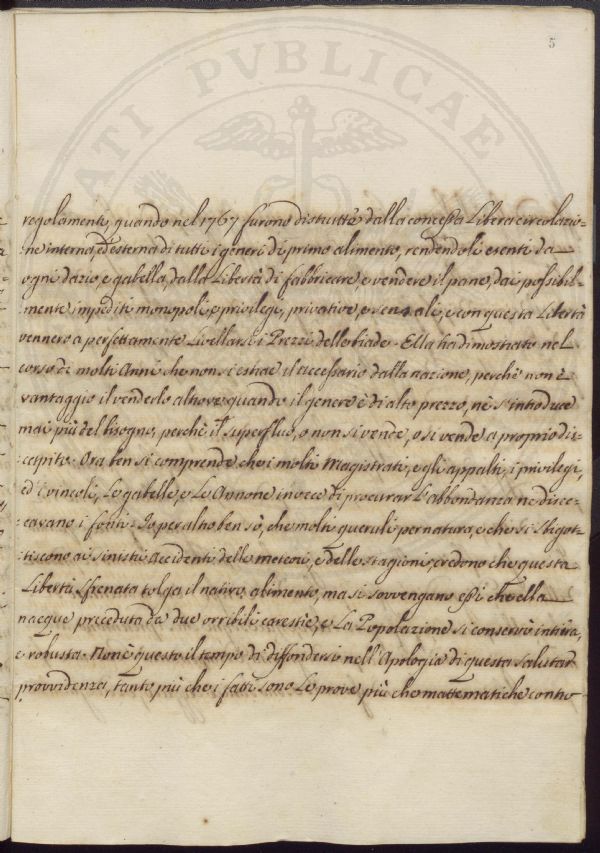 5
ATI PVBLICAE
regolamento, quando nel 1767 furono distrutte dalla concessa Libera circolazio-
ne interna, ed esterna di tutti i generi di primo alimento, rendendoli esenti da
ogni dazio, e gabella, dalla Libertà di fabbricare e vendere il pane, dai possibil-
mente impediti monopoli, e privilegj, privative e vensali, e con questa Libertà
vennero a perfettamente Livellarsi i Prezzi delle biade. Ella ha dimostrato nel
corso di molti Anni che non si estrae il necessario dalla nazione, perchè non è
vantaggio il venderlo altrove quando il genere è di alto prezzo, nè s'introduce
mai più del bisogno, perchè il superfluo, o non si vende, o si vende a proprio di-
scapito. Ora ben si comprende che i molti Magistrati, e gli appalti, i privilegj,
ed i vincoli, Le gabelle, e Le Annone invece di procurar L'abbondanza ne disec-
cavano i fonti. Io per altro ben sò, che molti queruli per natura, e che si sbigot-
tiscono ai sinistri accidenti delle meteore, e delle stagioni, credono che questa
Libertà sfrenata tolga il nativo alimento, ma si sovvengano essi che ella
nacque preceduta da due orribili carestie, e La Popolazione si conservò intiera,
e robusta. Non è questo il tempo di diffondersi nell'Apologia di questa salutar
provvidenza, tanto più che i fatti sono Le prove più che mattematiche contro